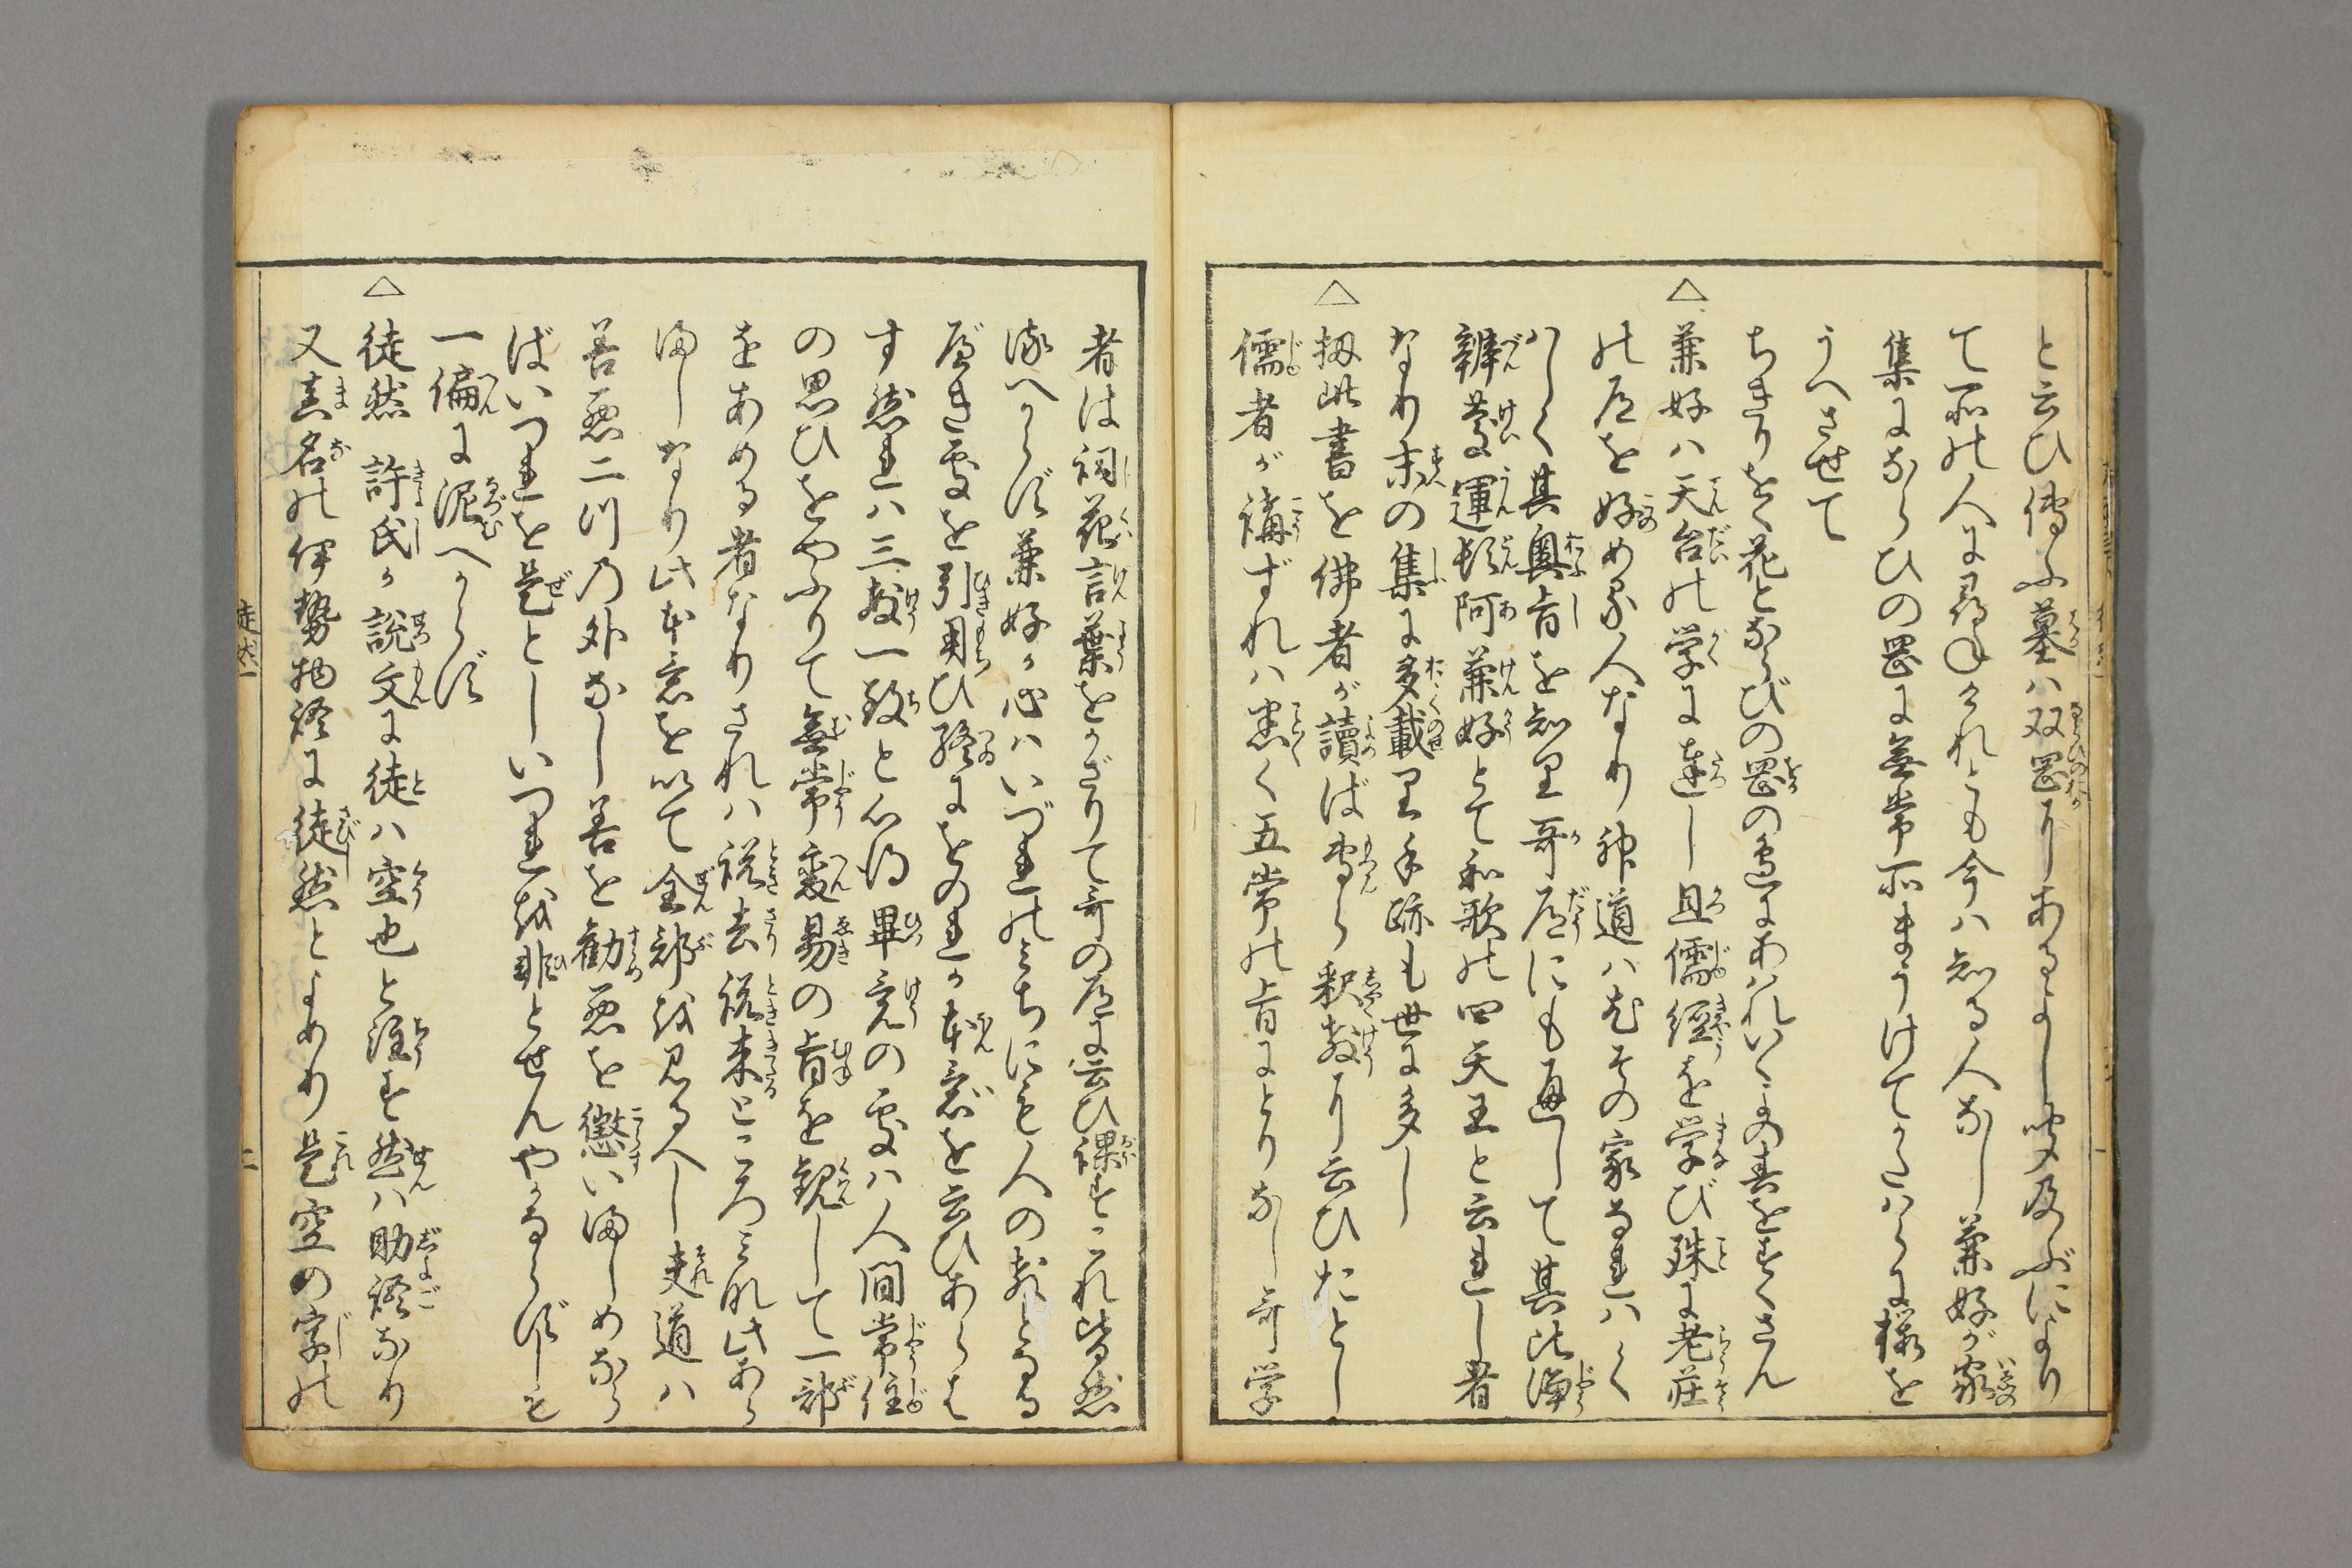 と云ひ傳ふ墓ハ双岡にあるよし聞及ぶにより
て所の人に尋ねけれとも今ハ知る人なし兼好が家
集にならひの岡に無常所まうけてかたハらに桜を
うへさせて
ちきりをく花とならびの岡の邊にあハれいくよの春をすくさん
△兼好ハ天台の学に達し且儒經を学び殊に老莊
の道を好める人なり神道ハもとその家なれハくハ
しく其奥旨を知里哥道にも通して其比浄
辨慶運頓阿兼好とて和歌の四天王と云れし者
なり末の集に多載里手跡も世に多し
△扨此書を佛者が讀ば専ら釈教に云ひおとし
儒者が講ずれハ悉く五常の旨にとりなし哥学
者は詞花言葉をかざりて哥の道に云ひ課すこれ皆然
るへからず兼好か心ハいづれのみちにも人の教となる
べき事を引用ひ終にをのれか本意を云ひあらは
す然れハ三教一致と心得畢竟の事ハ人間常住
の思ひをやふりて無常変易の旨を観して一部
をあめる者なりされハ説去説来ところみな此あら
ましなり此本意を以て全部を見るへし夫道ハ
善悪二つ乃外なし善を勧悪を懲いましめなら
ばいつれを是としいつれを非とせんやかならずしも
一偏に泥へからず
△徒然 許氏か説文に徒ハ空也と注す然ハ助語なり
又真名の伊勢物語に徒然とよめり是空の字の
徒大一
二